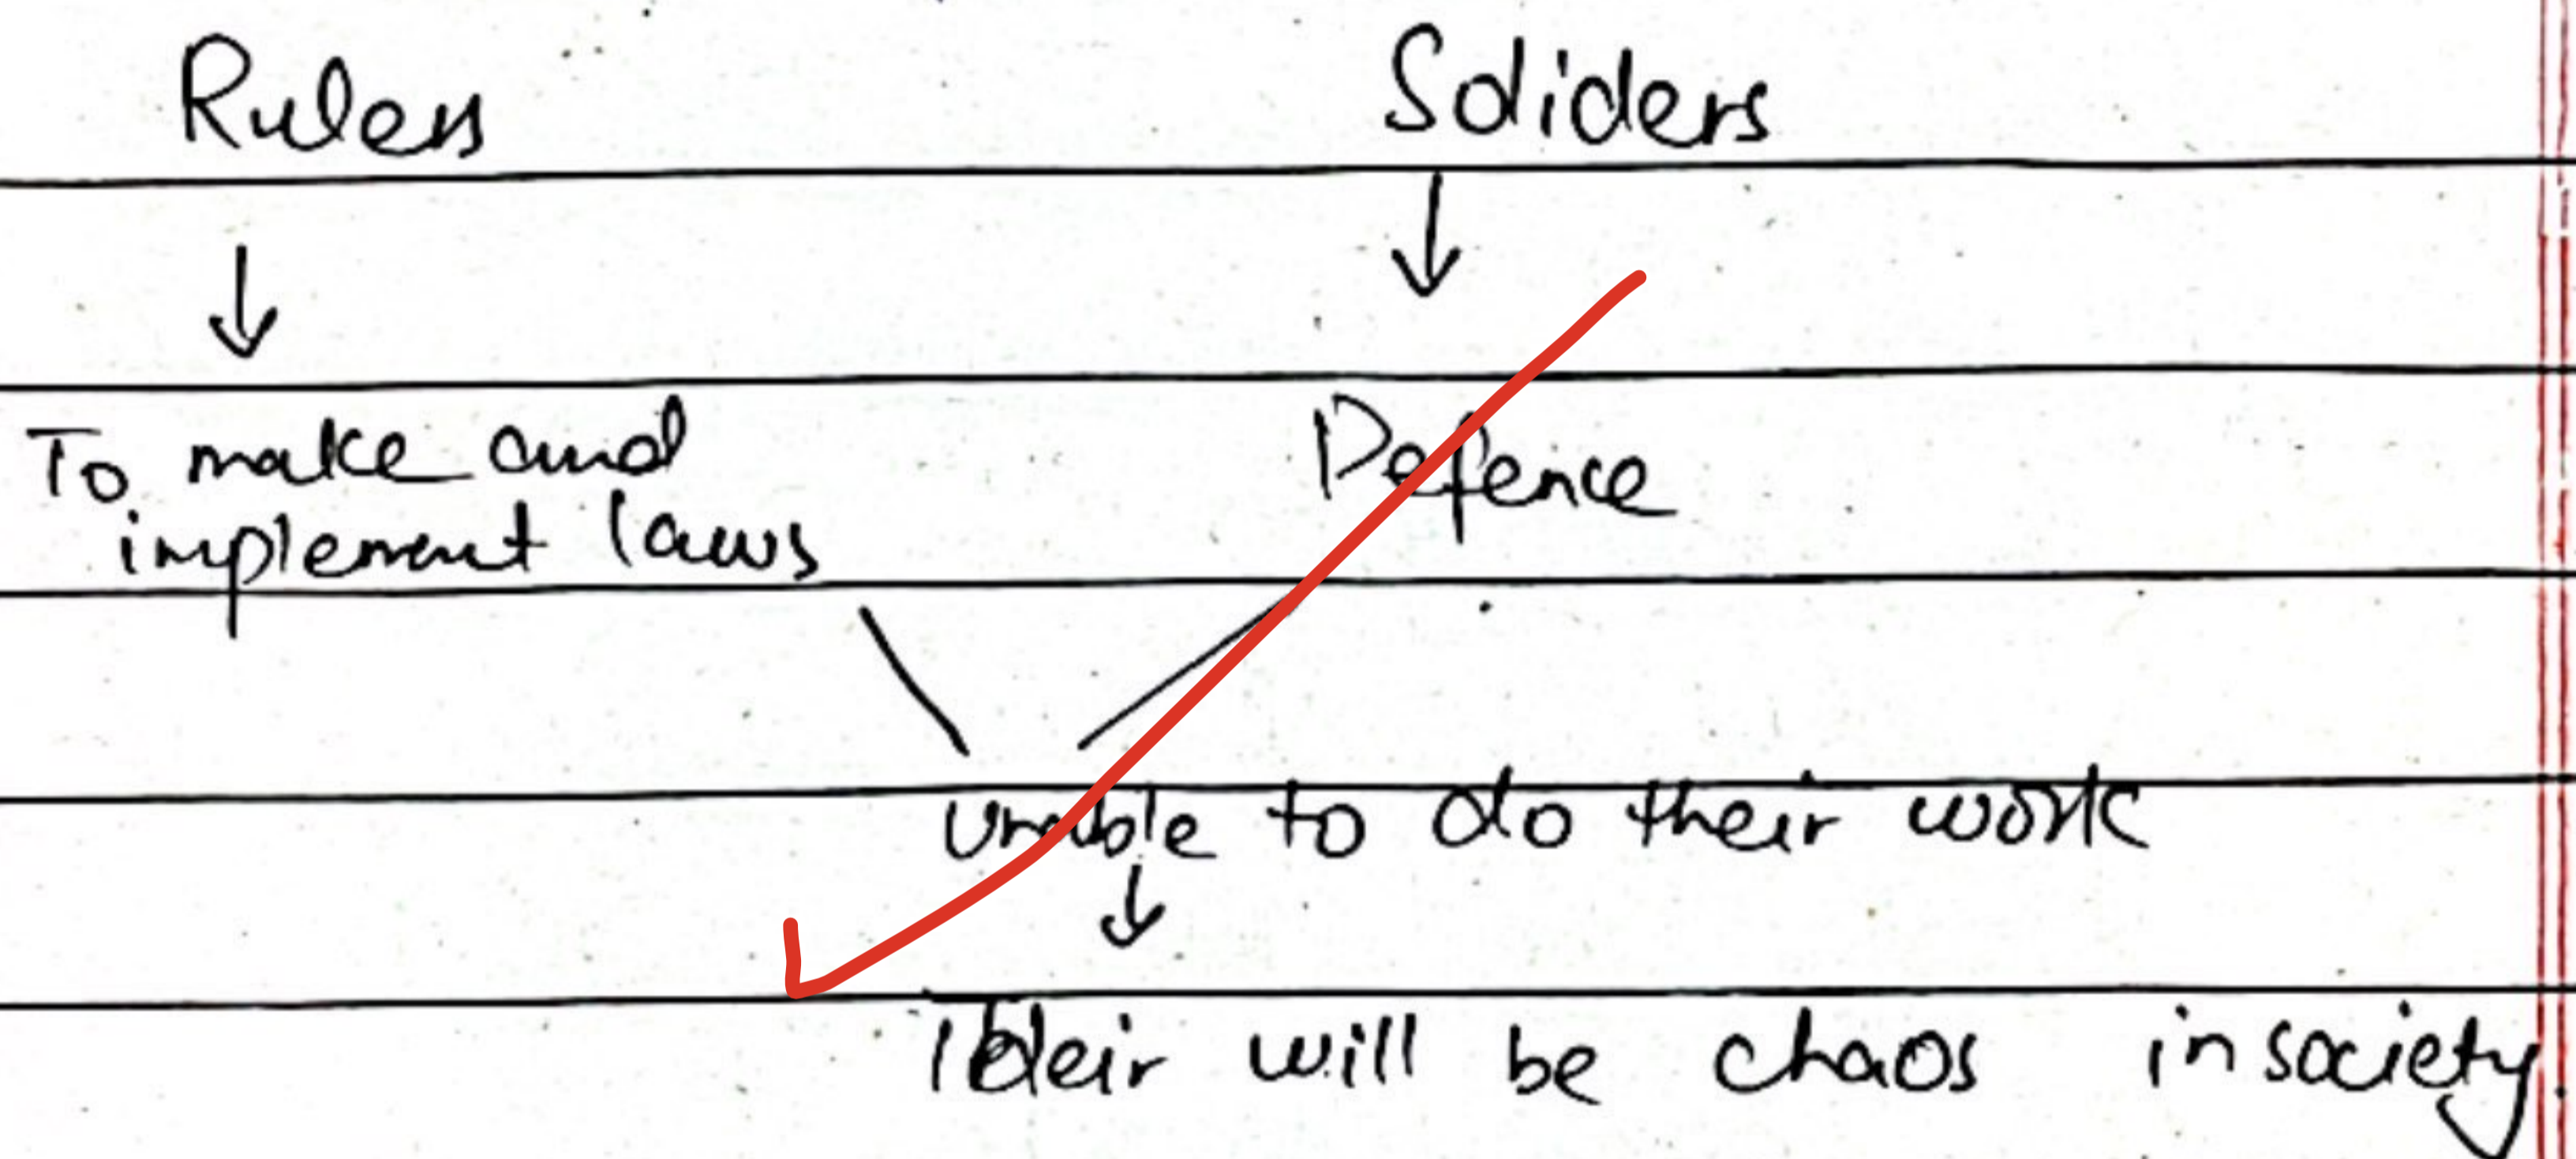 Rulers Soliders
↓ ↓
To make and Defence
implement laws
unable to do their work
↓
Their will be chaos in society.